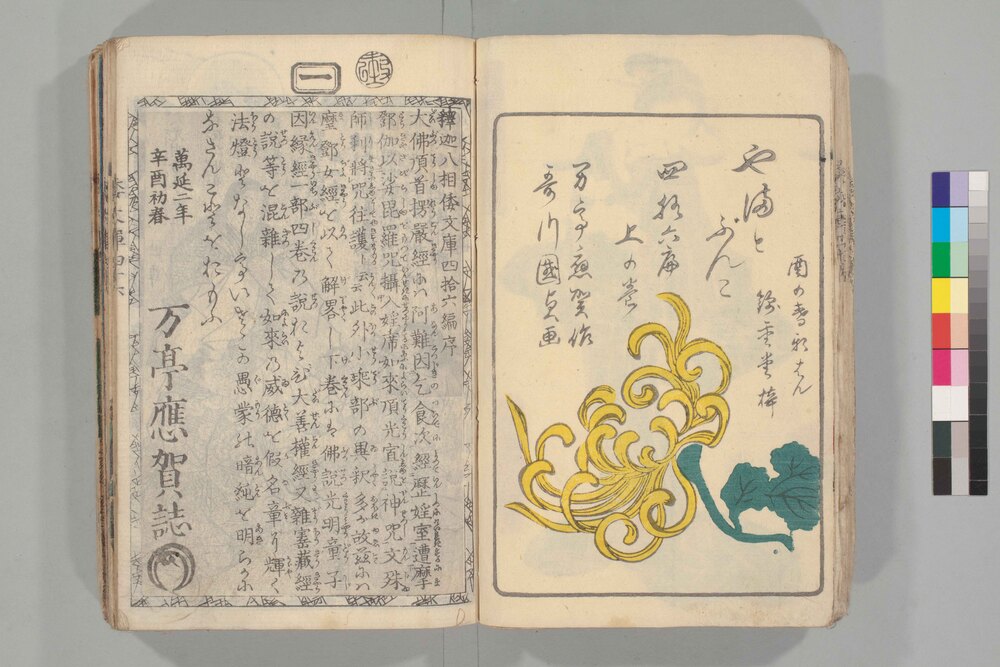 酉の春新はん
錦重堂梓
やまと
ぶんこ
四拾六篇
上の巻
万亭應賀作
哥川國貞画
一
釋迦八相倭文庫四拾六編序
大佛頂首楞嚴經に阿難因乞食次經歴婬室遭摩
鄧伽以娑毘羅咒攝入婬席如來頂光宣說神咒文殊
師利將咒往護と云云此外小乘部の異釈多き故茲には
摩鄧女經を以て解畧し下巻には佛説光明童子
因縁經一部四卷の説および大善權經又雜寳藏經
の說等を混雜して如來の威德を假名章に輝く
法燈となし
愚蒙の暗純を明らかに
萬延二年
辛酉初春
万亭應賀誌